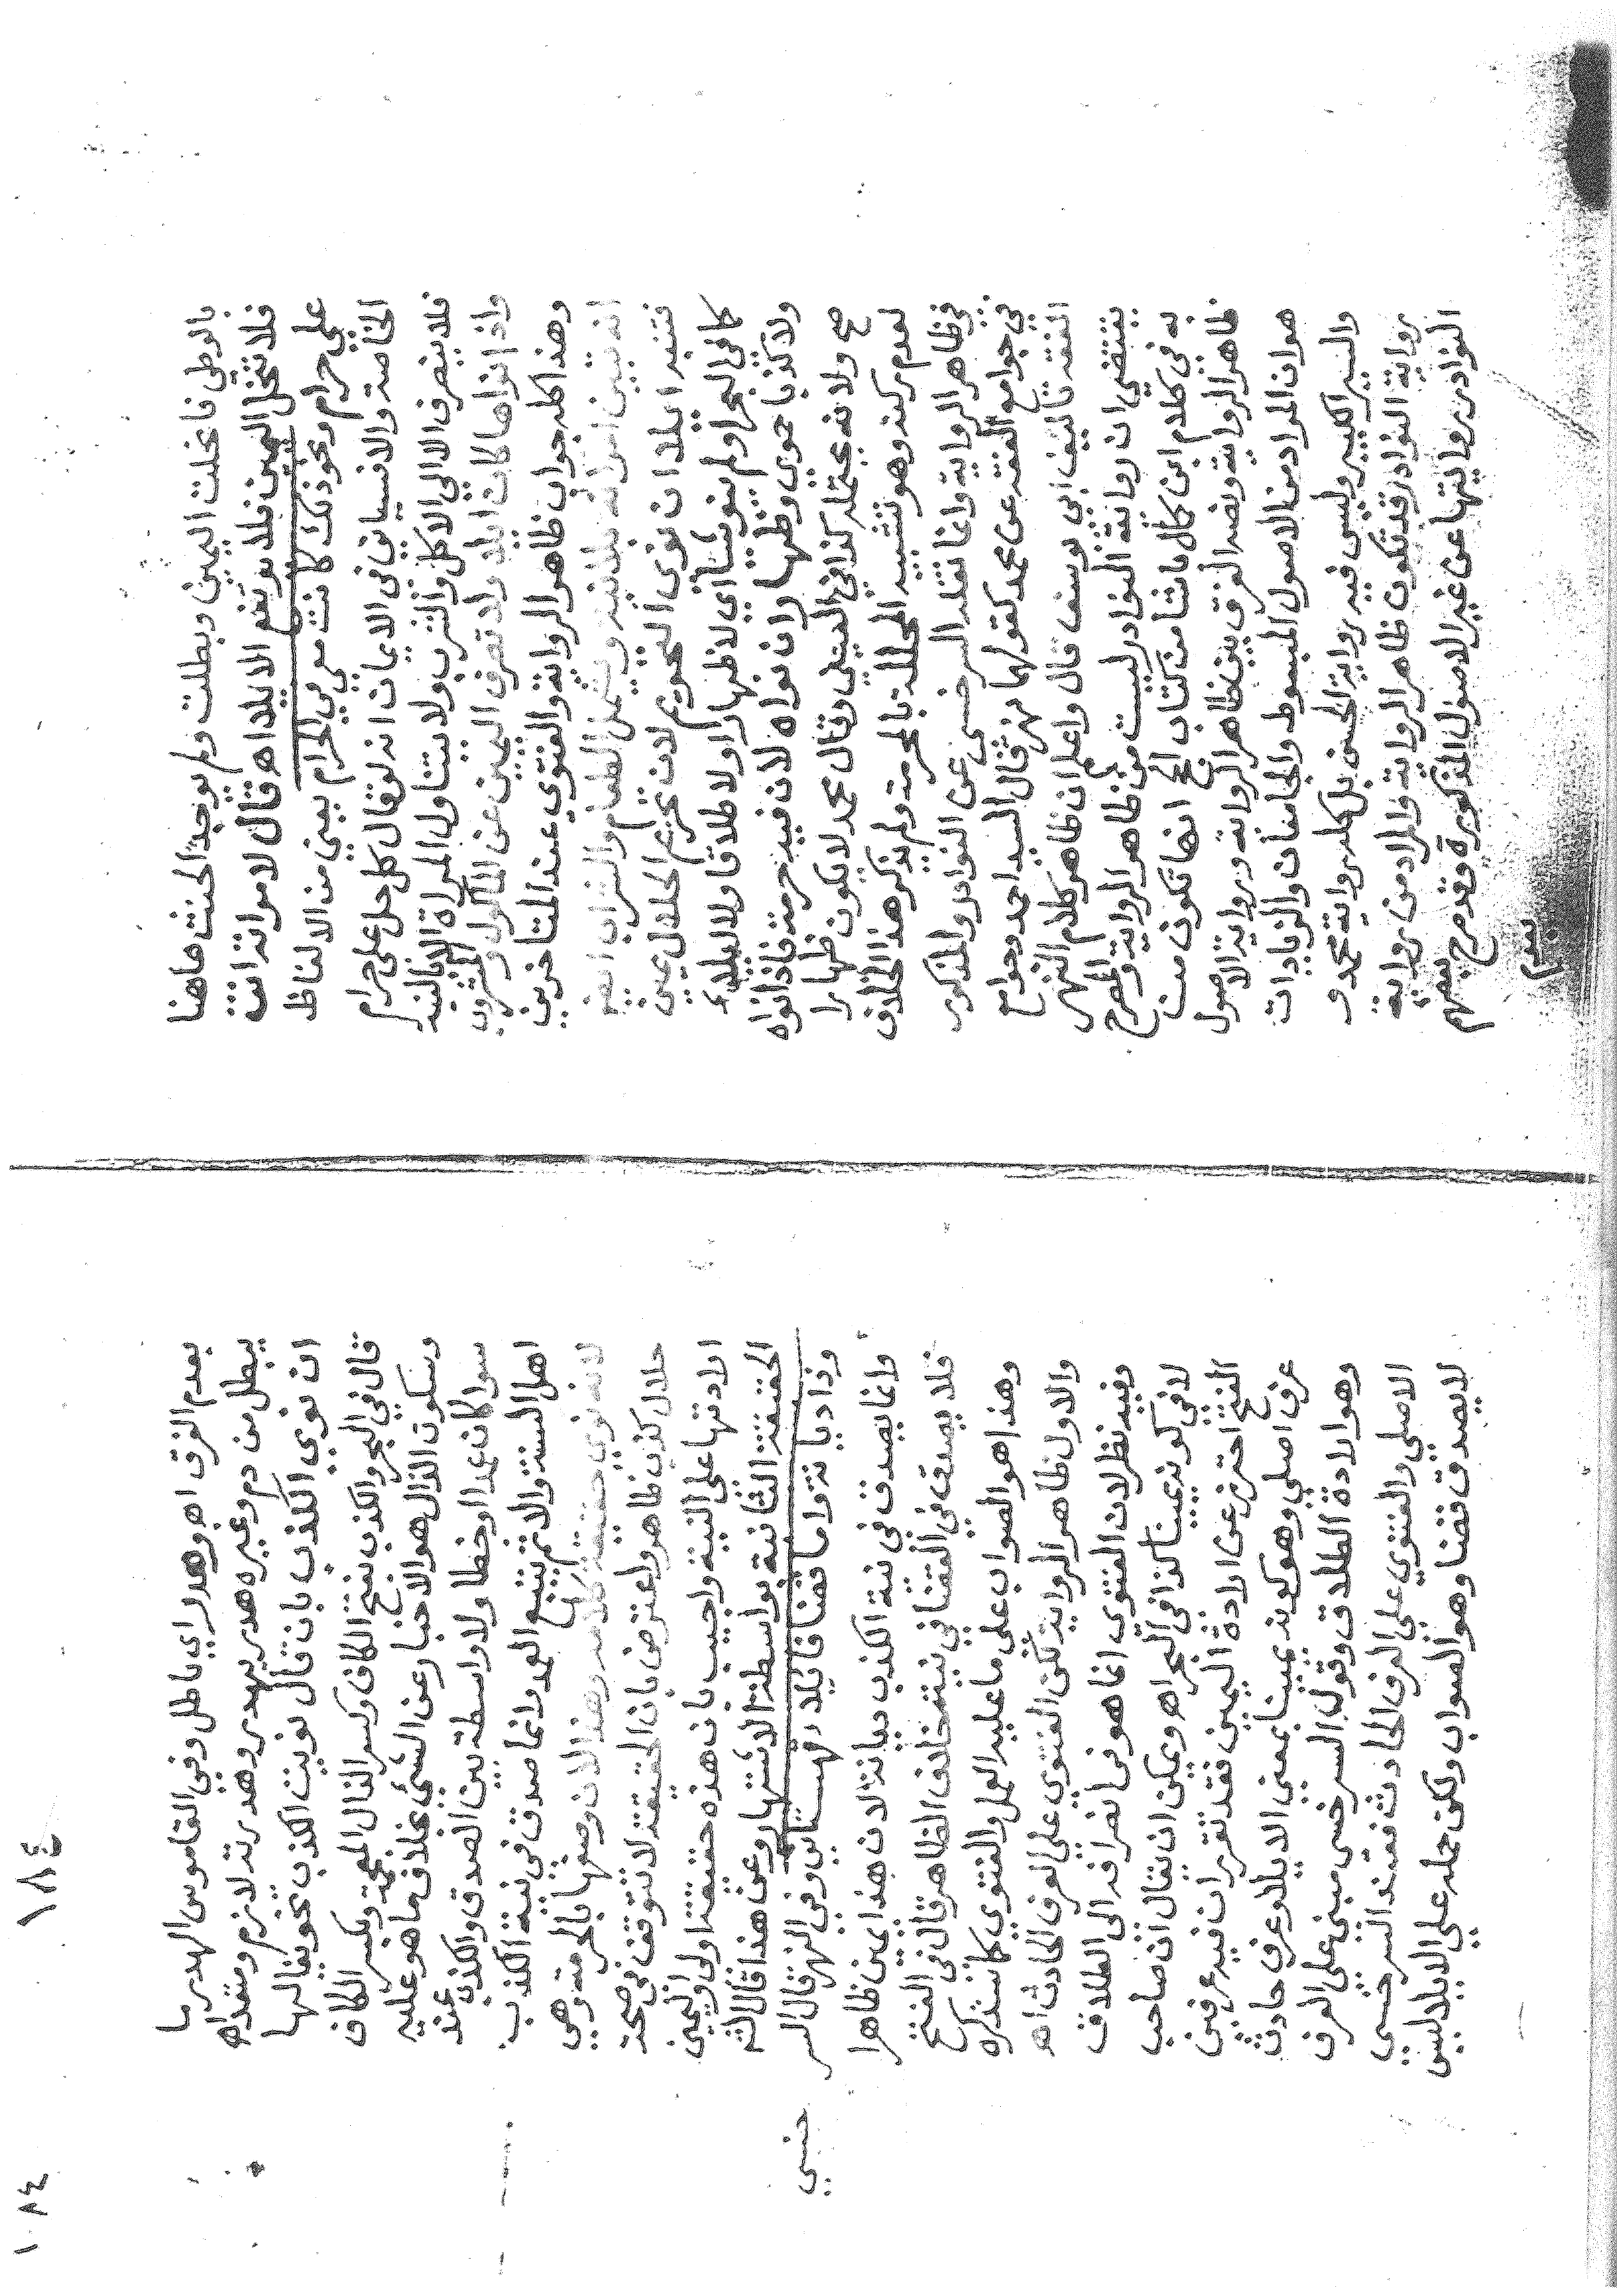 بالوطى فانحلت اليمين وبطلت ولم يوجد الحنث هاهنا
فلا تنحل اليمين فلا يرتفع الايلا اه قال لامراته انت
علي حرام ونحو ذلك كانت معي في الحرام يعني من الالفاظ
الخاصة والا فسياتي في الايمان انه لو قال كل حل علي حرام
فلا ينصرف الا الي الاكل والشرب ولا يتناول المراة الا بالنية
واذا نواها كان ايلا ولا تصرف اليمين عن الماكول والمشروب
وهذا كله جواب ظاهر الرواية والفتوي عند المتاخرين
انه تبين امراته بلا نية ويشمل الطعام والشراب ايضا
فتنبه ايلا ان نوى التحريم لان تحريم الحلال يمين
كما في البحر او لم ينو شيا اي لا ظهارا ولا طلاقا ولا ايلاء
ولا كذبا حموي وظهار ان نواه لان فيه حرمة فاذا نواه
صح ولانه يحتمله كذا في العيني وقال محمد لا يكون ظهارا
لعدم ركنه وهو تشبيه المحللة بالمحرمة ولم يذكر هذا الخلاف
في ظاهر الرواية وانما نقله السرخسي عن النوادر والمذكور
في جوامع الفقه عن محمد كقولهما نهر قال السيد احمد وجوامع
الفقه تاليف ابي يوسف قال واعلم ان ظاهر كلام النهر
يقتضي ان رواية النوادر ليست من ظاهر الرواية والمصرح
به في كلام ابن كمال باشا من كتاب الحج انها تكون من
ظاهر الرواية ونصه الفرق بين ظاهر الرواية ورواية الاصول
هو ان المراد من الاصول المبسوط والجامعان والزيادات
والسير الكبير وليس فيه رواية الحسن بل كله رواية محمد و
رواية النوادر قد تكون ظاهر الرواية والمراد من رواية
النوادر روايتها عن غير الاصول المذكورة وقد صرح بعضهم
بعدم
١٨٤
بعدم الفرق اه وهدر اي باطل وفي القاموس الهدر ما
يبطل من دم وغيره هدر يهدر وهدرته لازم ومتعد اه
ان نوي الكذب بان قال نويت الكذب نحو يقال لها
قال في البحر والكذب بفتح الكاف وكسر الذال المعجمة وبكسر الكاف
وسكون الذال هو الاخبار عن الشي بخلاف ما هو عليه
سوا كان عمدا او خطا ولا واسطة بين الصدق والكذب عند
اهل السنة والاثم يتبع العمد وانما صدق في نية الكذب
لانه نوي حقيقة كلامه وهذا لان وصفها بالحرمة وهي
حلال كذب ظاهر واعترض بان الحقيقة لا تتوقف في صحة
ارادتها على النية واجيب بان هذه حقيقة اولي واليمين
الحقيقة الثانية بواسطة الاشتهار وعن هذا قال الشر
وذا ديانة واما قضا فايلا قهستاني وفي النهر قال السر
خسي
وانما يصدق في نية الكذب ديانة لان هذا يمين ظاهرا
فلا يصدق في القضا في نيته خلاف الظاهر قال في الفتح
وهذا هو الصواب على ما عليه العمل والفتوي كما سنذكره
والاول ظاهر الرواية لكن الفتوي علي العرف الحادث اه
وفيه نظر لان الفتوى انما هو في انصرافه الى الطلاق
لا في كونه يمينا كذا في البحر اه ويمكن ان يقال ان صاحب
الفتح احترز عن ارادة اليمين فقد تقرر ان فيه عرفين
عرف اصلي وهو كونه يمينا بمعني الايلا وعرف حادث
وهو ارادة الطلاق وقول السرخسي مبني على العرف
الاصلي والفتوي علي العرف الحادث فقيد السرخسي
لا يصدق قضا وهو الصواب ولكن حمله علي الايلا ليس
١٨٤